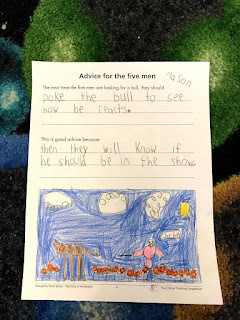 Mason
Advice for the five men
The next time the five men are looking for a bull, they should
poke the bull to see
how he reacts.
This is good advice because
then they will know if
he should be in the show.
The Critical Thinking Consortium